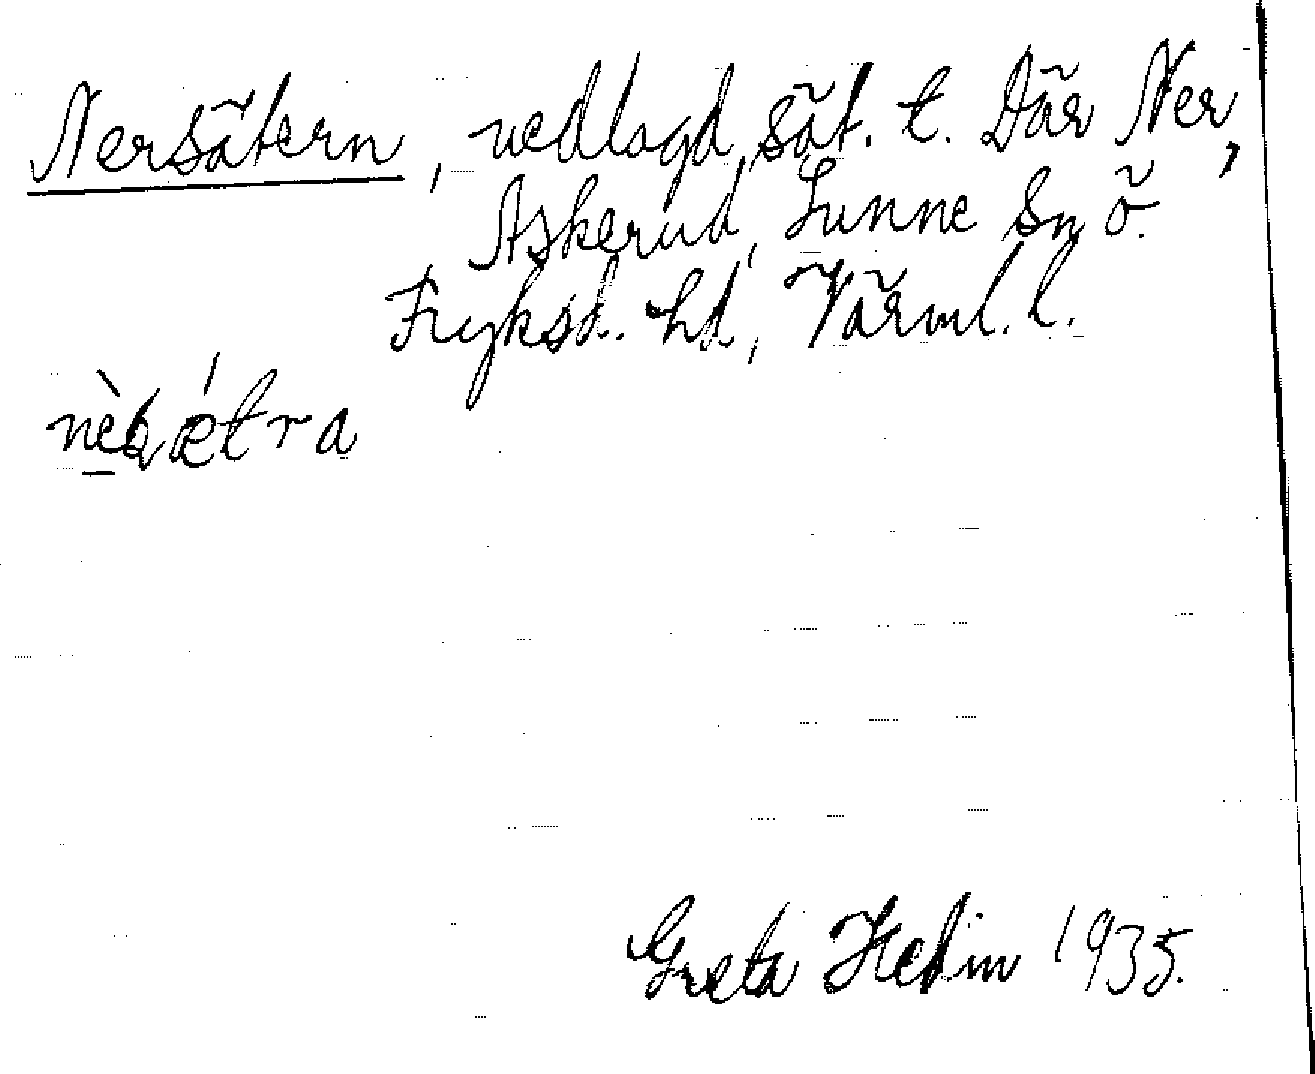 Nersätern, nedlagd sät. t. Där Ner,
Askerud, Sunne Sn Ö.
Fryksd. hd, Värml. l.
Greta Hedin 1935.